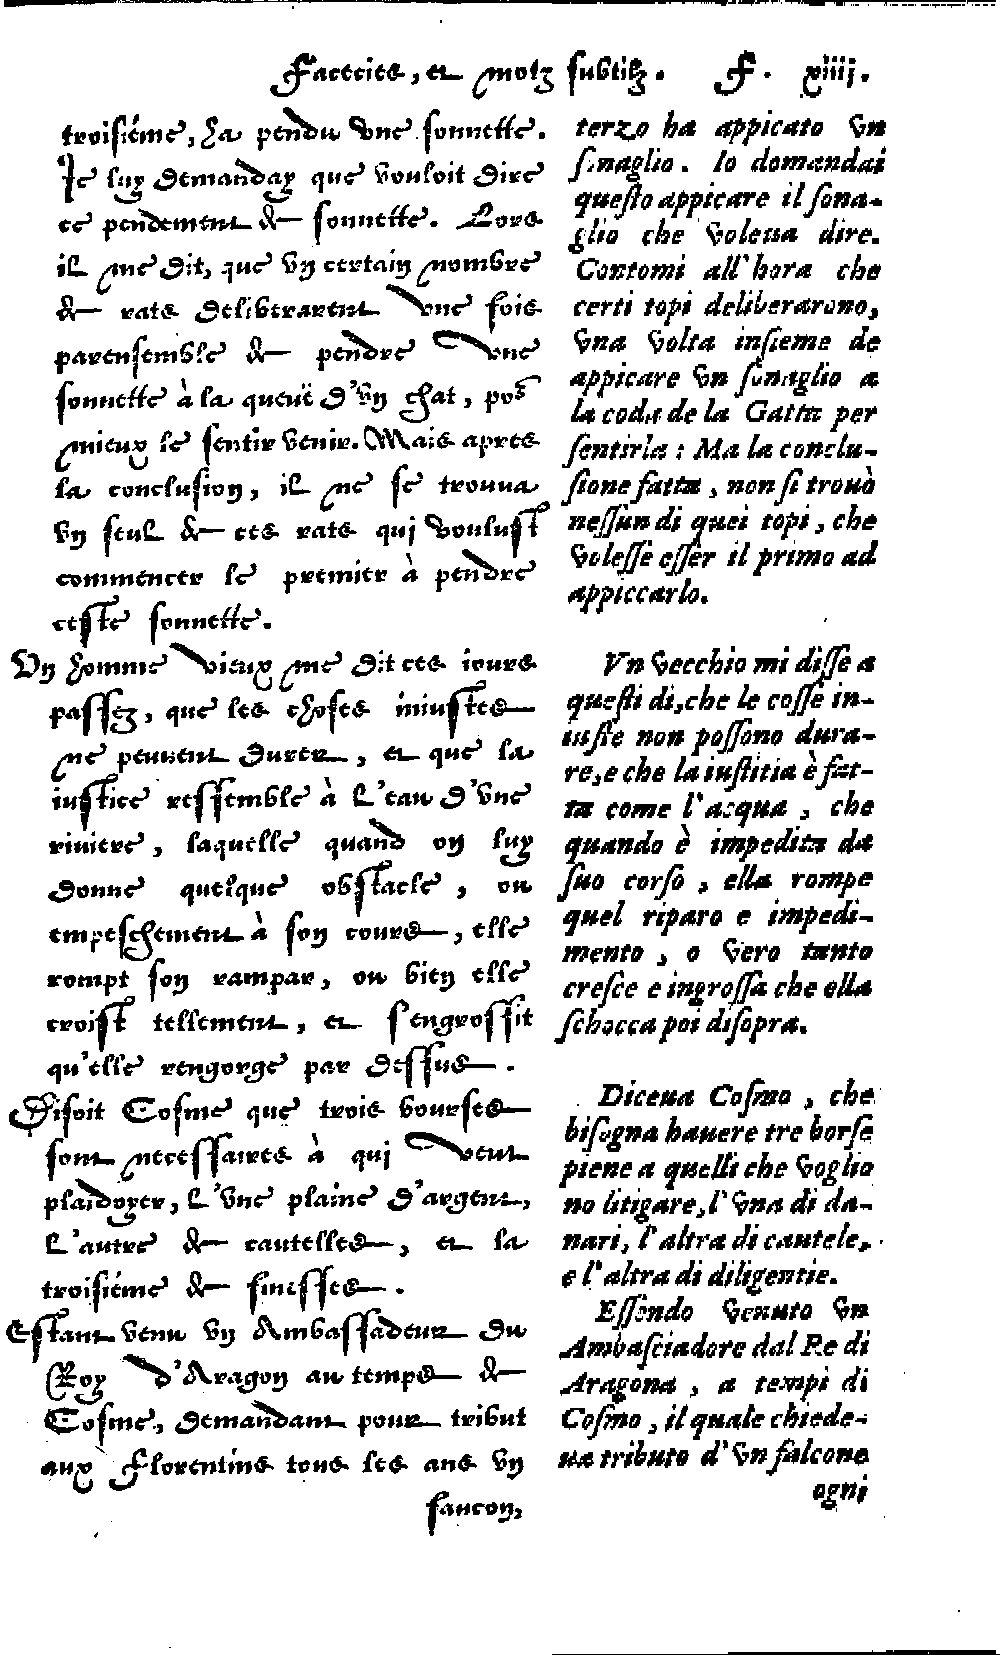 Facecies, et motz subtilz. F. xiiij.
troisiéme, ha pendu vne sonnette.
Ie luy demanday que vouloit dire
ce pendement de sonnette. Lors
il me dit, que vn certain nombre
de rats delibererent vne fois
parensemble de pendre vne
sonnette à la queuë d'vn chat, pour
mieux le sentir venir. Mais apres
la conclusion, il ne se trouua
vn seul de ces rats qui voulust
commencer le premier à pendre
ceste sonnette.
Vn homme vieux me dit ces iours
passez, que les choses iniustes
ne peuuent durer, et que la
iustice ressemble à l'eau d'vne
riuiere, laquelle quand on luy
donne quelque obstacle, ou
empeschement à son cours, elle
rompt son rampar, ou bien elle
croist tellement, et s'engrossit
qu'elle rengorge par dessus.
Disoit Cosme que trois bourses
sont necessaires à qui veut
plaidoyer, l'vne plaine d'argent,
l'autre de cautelles, et la
troisiéme de finesses.
Estant venu vn Ambassadeur du
Roy d'Aragon au temps de
Cosme, demandant pour tribut
aux Florentins tous les ans vn
faucon,
terzo ha appicato vn
sonaglio. Io domandai
questo appicare il sona-
glio che voleua dire.
Contomi all'hora che
certi topi deliberarono,
vna volta insieme de
appicare vn sonaglio a
la coda de la Gatta per
sentirla: Ma la conclu-
sione fatta, non si trouò
nessun di quei topi, che
volesse esser il primo ad
appiccarlo.
Vn vecchio mi disse a
questi di, che le cosse in-
iuste non possono dura-
re, e che la iustitia è fat-
ta come l'acqua, che
quando è impedita da
suo corso, ella rompe
quel riparo e impedi-
mento, o vero tanto
cresce e ingrossa che ella
schocca poi disopra.
Diceua Cosmo, che
bisogna hauere tre borse
piene a quelli che voglio
no litigare, l'vna di da-
nari, l'altra di cautele,
e l'altra di diligentie.
Essendo venuto vn
Ambasciadore dal Re di
Aragona, a tempi di
Cosmo, il quale chiede-
ua tributo d'vn falcone
ogni